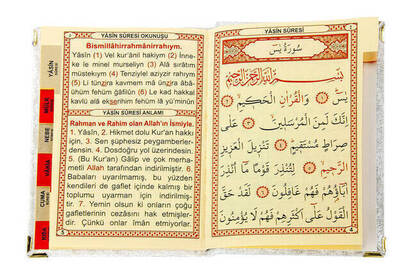 YÂSİN SÛRESİ OKUNUŞU
Bismillâhirrahmânirrahıym.
Yâsîn (1) Vel kur'ânil hakiym (2) İnne-
ke le minel murseliyn (3) Alâ sırâtım
müstekıym (4) Tenziylel aziyzir rahıym
(5) Li tünzira kavmem mâ ünzira âbâ-
ühüm fehüm ğâfilûn (6) Le kad hakkal
kavlü alâ ekserihim fehüm lâ yü'minûn
YÂSİN SÛRESİ ANLAMI
Rahman ve Rahim olan Allah'ın İsmiyle.
1. Yâsîn, 2. Hikmet dolu Kur'an hakkı
için, 3. Sen şüphesiz peygamberler-
densin. 4. Dosdoğru yol üzerindesin.
5. (Bu Kur'an) Gâlip ve çok merha-
metli Allah tarafından indirilmiştir. 6.
Babaları uyarılmamış, bu yüzden
kendileri de gaflet içinde kalmış bir
toplumu uyarman için indirilmiş-
tir. 7. Yemin olsun ki onların çoğu
gafletlerinin cezasını hak etmişler-
dir. Çünkü onlar îman etmiyorlar.
5
YÂSİN
SÛRESİ
MÜLK
NEBE
VÂKIA
CUMA
RIZA
YÂSİN SÛRESİ
سُورَةُ يٰسٓ
بِسْمِ اللّٰهِ الرَّحْمٰنِ الرَّحِيمِ
يٰسٓ ﴿١﴾ وَالْقُرْاٰنِ الْحَكِيمِ ﴿٢﴾
اِنَّكَ لَمِنَ الْمُرْسَلِينَ ﴿٣﴾ عَلٰى
صِرَاطٍ مُسْتَقِيمٍ ﴿٤﴾ تَنْزِيلَ الْعَزِيزِ
الرَّحِيمِ ﴿٥﴾ لِتُنْذِرَ قَوْمًا مَٓا اُنْذِرَ
اٰبَٓاؤُ۬هُمْ فَهُمْ غَافِلُونَ ﴿٦﴾ لَقَدْ حَقَّ
الْقَوْلُ عَلٰٓى اَكْثَرِهِمْ فَهُمْ لَا يُؤْمِنُونَ
4